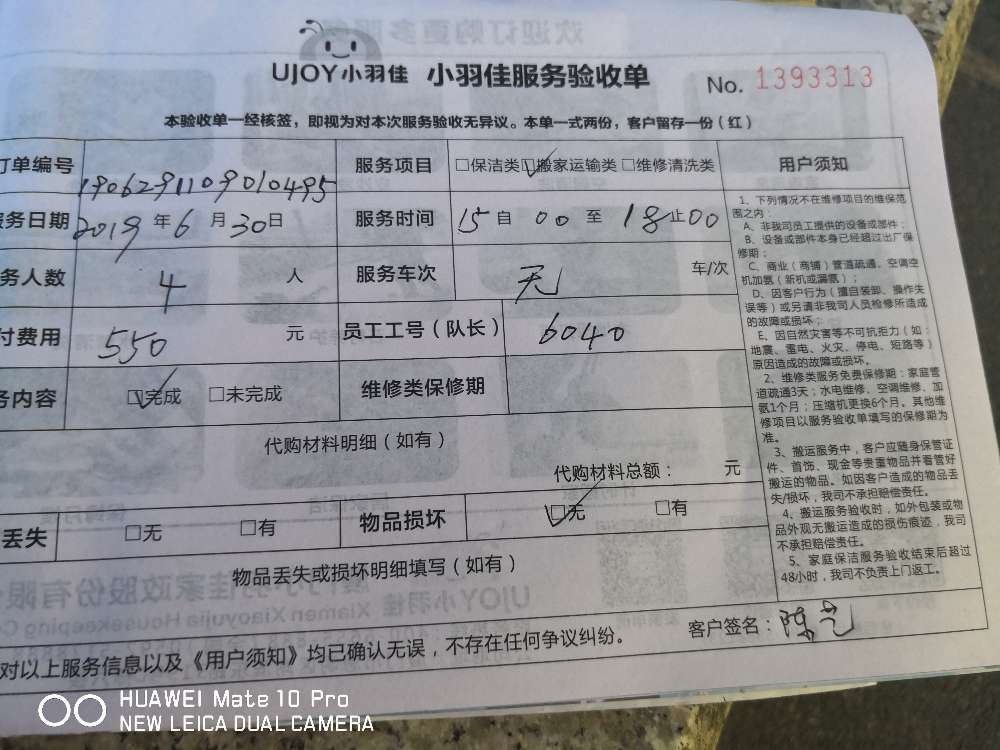 UJOY小羽佳 小羽佳服务验收单 No. 1393313
本验收单一经核签，即视为对本次服务验收无异议。本单一式两份，客户留存一份（红）
订单编号 1906291109010495 服务项目 □保洁类 ☑搬家运输类 □维修清洗类 用户须知
务日期 2019 年 6 月 30 日 服务时间 15 自 00 至 18 止 00
务人数 4 人 服务车次 无 车/次
付费用 550 元 员工工号（队长） 6040
务内容 ☑完成 □未完成 维修类保修期
代购材料明细（如有）
代购材料总额： 元
丢失 □无 □有 物品损坏 ☑无 □有
物品丢失或损坏明细填写（如有）
对以上服务信息以及《用户须知》均已确认无误，不存在任何争议纠纷。 客户签名：陈
1、下列情况不在维修项目的维保范
围之内：
A、非我司员工提供的设备或部件；
B、设备或部件本身已经超过出厂保
修期；
C、商业（商铺）管道疏通、空调空
机加氨（新机或漏氨）；
D、因客户行为（擅自装卸、操作失
误等）或另请非我司人员检修所造成
的故障或损坏；
E、因自然灾害等不可抗拒力（如：
地震、雷电、火灾、停电、短路等）
原因造成的故障或损坏。
2、维修类服务免费保修期：家庭管
道疏通3天；水电维修、空调维修、加
氨1个月；压缩机更换6个月。其他维
修项目以服务验收单填写的保修期为
准。
3、搬运服务中，客户应随身保管证
件、首饰、现金等贵重物品并看管好
搬运的物品。如因客户造成的物品丢
失/损坏，我司不承担赔偿责任。
4、搬运服务验收时，如外包装或物
品外观无搬运造成的损伤痕迹，我司
不承担赔偿责任。
5、家庭保洁服务验收结束后超过
48小时，我司不负责上门返工。
HUAWEI Mate 10 Pro
NEW LEICA DUAL CAMERA